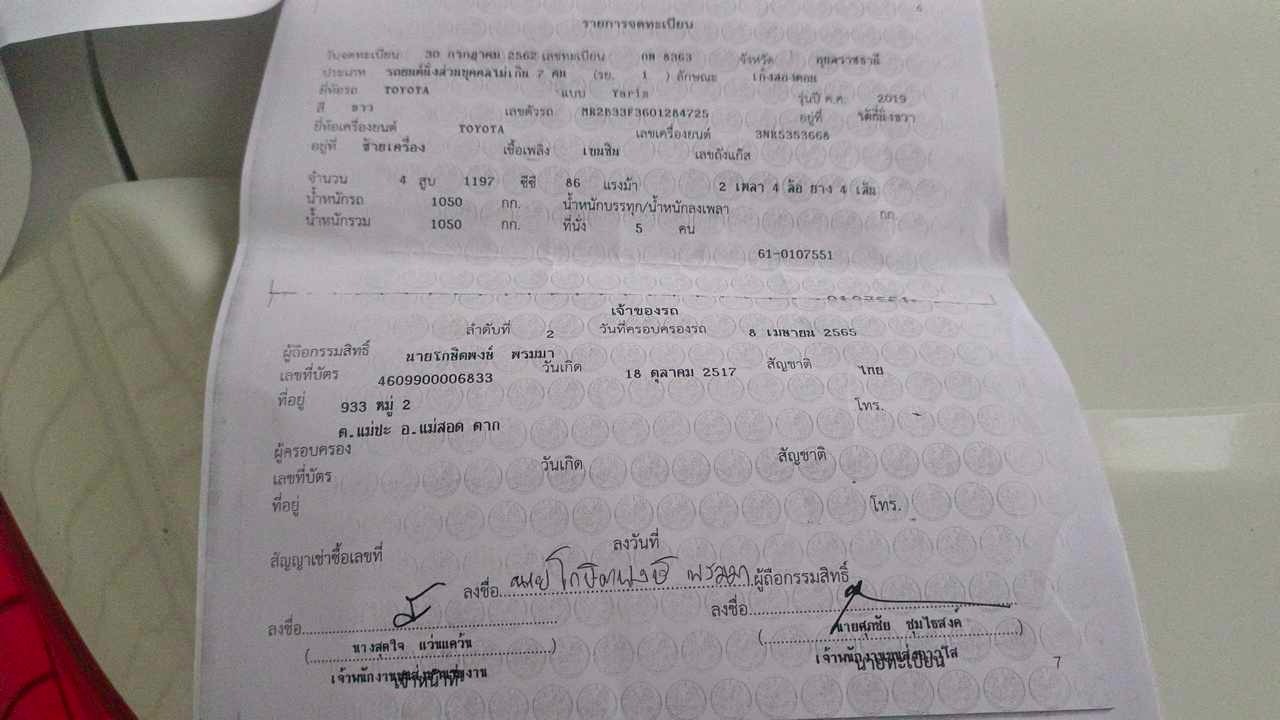 รายการจดทะเบียน
วันจดทะเบียน 30 กรกฎาคม 2562 เลขทะเบียน กท 8363 จังหวัด อุบลราชธานี
ประเภท รถยนต์นั่งส่วนบุคคลไม่เกิน 7 คน (รย. 1 ) ลักษณะ เก๋งสองตอน
ยี่ห้อรถ TOYOTA แบบ Yaris รุ่นปี ค.ศ. 2019
สี ขาว เลขตัวรถ MR2B33F3601284725 อยู่ที่ ใต้ที่นั่งขวา
ยี่ห้อเครื่องยนต์ TOYOTA เลขเครื่องยนต์ 3NR5353668
อยู่ที่ ซ้ายเครื่อง เชื้อเพลิง เบนซิน เลขถังแก๊ส
จำนวน 4 สูบ 1197 ซีซี 86 แรงม้า 2 เพลา 4 ล้อ ยาง 4 เส้น
น้ำหนักรถ 1050 กก. น้ำหนักบรรทุก/น้ำหนักลงเพลา กก.
น้ำหนักรวม 1050 กก. ที่นั่ง 5 คน
61-0107551
เจ้าของรถ
ลำดับที่ 2 วันที่ครอบครองรถ 8 เมษายน 2565
ผู้ถือกรรมสิทธิ์ นายโกษิตพงษ์ พรมมา
เลขที่บัตร 4609900006833 วันเกิด 18 ตุลาคม 2517 สัญชาติ ไทย
ที่อยู่ 933 หมู่ 2 โทร. -
ต.แม่ปะ อ.แม่สอด ตาก
ผู้ครอบครอง
เลขที่บัตร วันเกิด สัญชาติ
ที่อยู่ โทร.
สัญญาเช่าซื้อเลขที่ ลงวันที่
ลงชื่อ นายโกษิตพงษ์ พรมมา ผู้ถือกรรมสิทธิ์
ลงชื่อ ลงชื่อ
(นางสุดใจ แว่นแคว้น) (นายศุภชัย ชุมไธสงค์)
เจ้าหน้าที่ นายทะเบียน
7